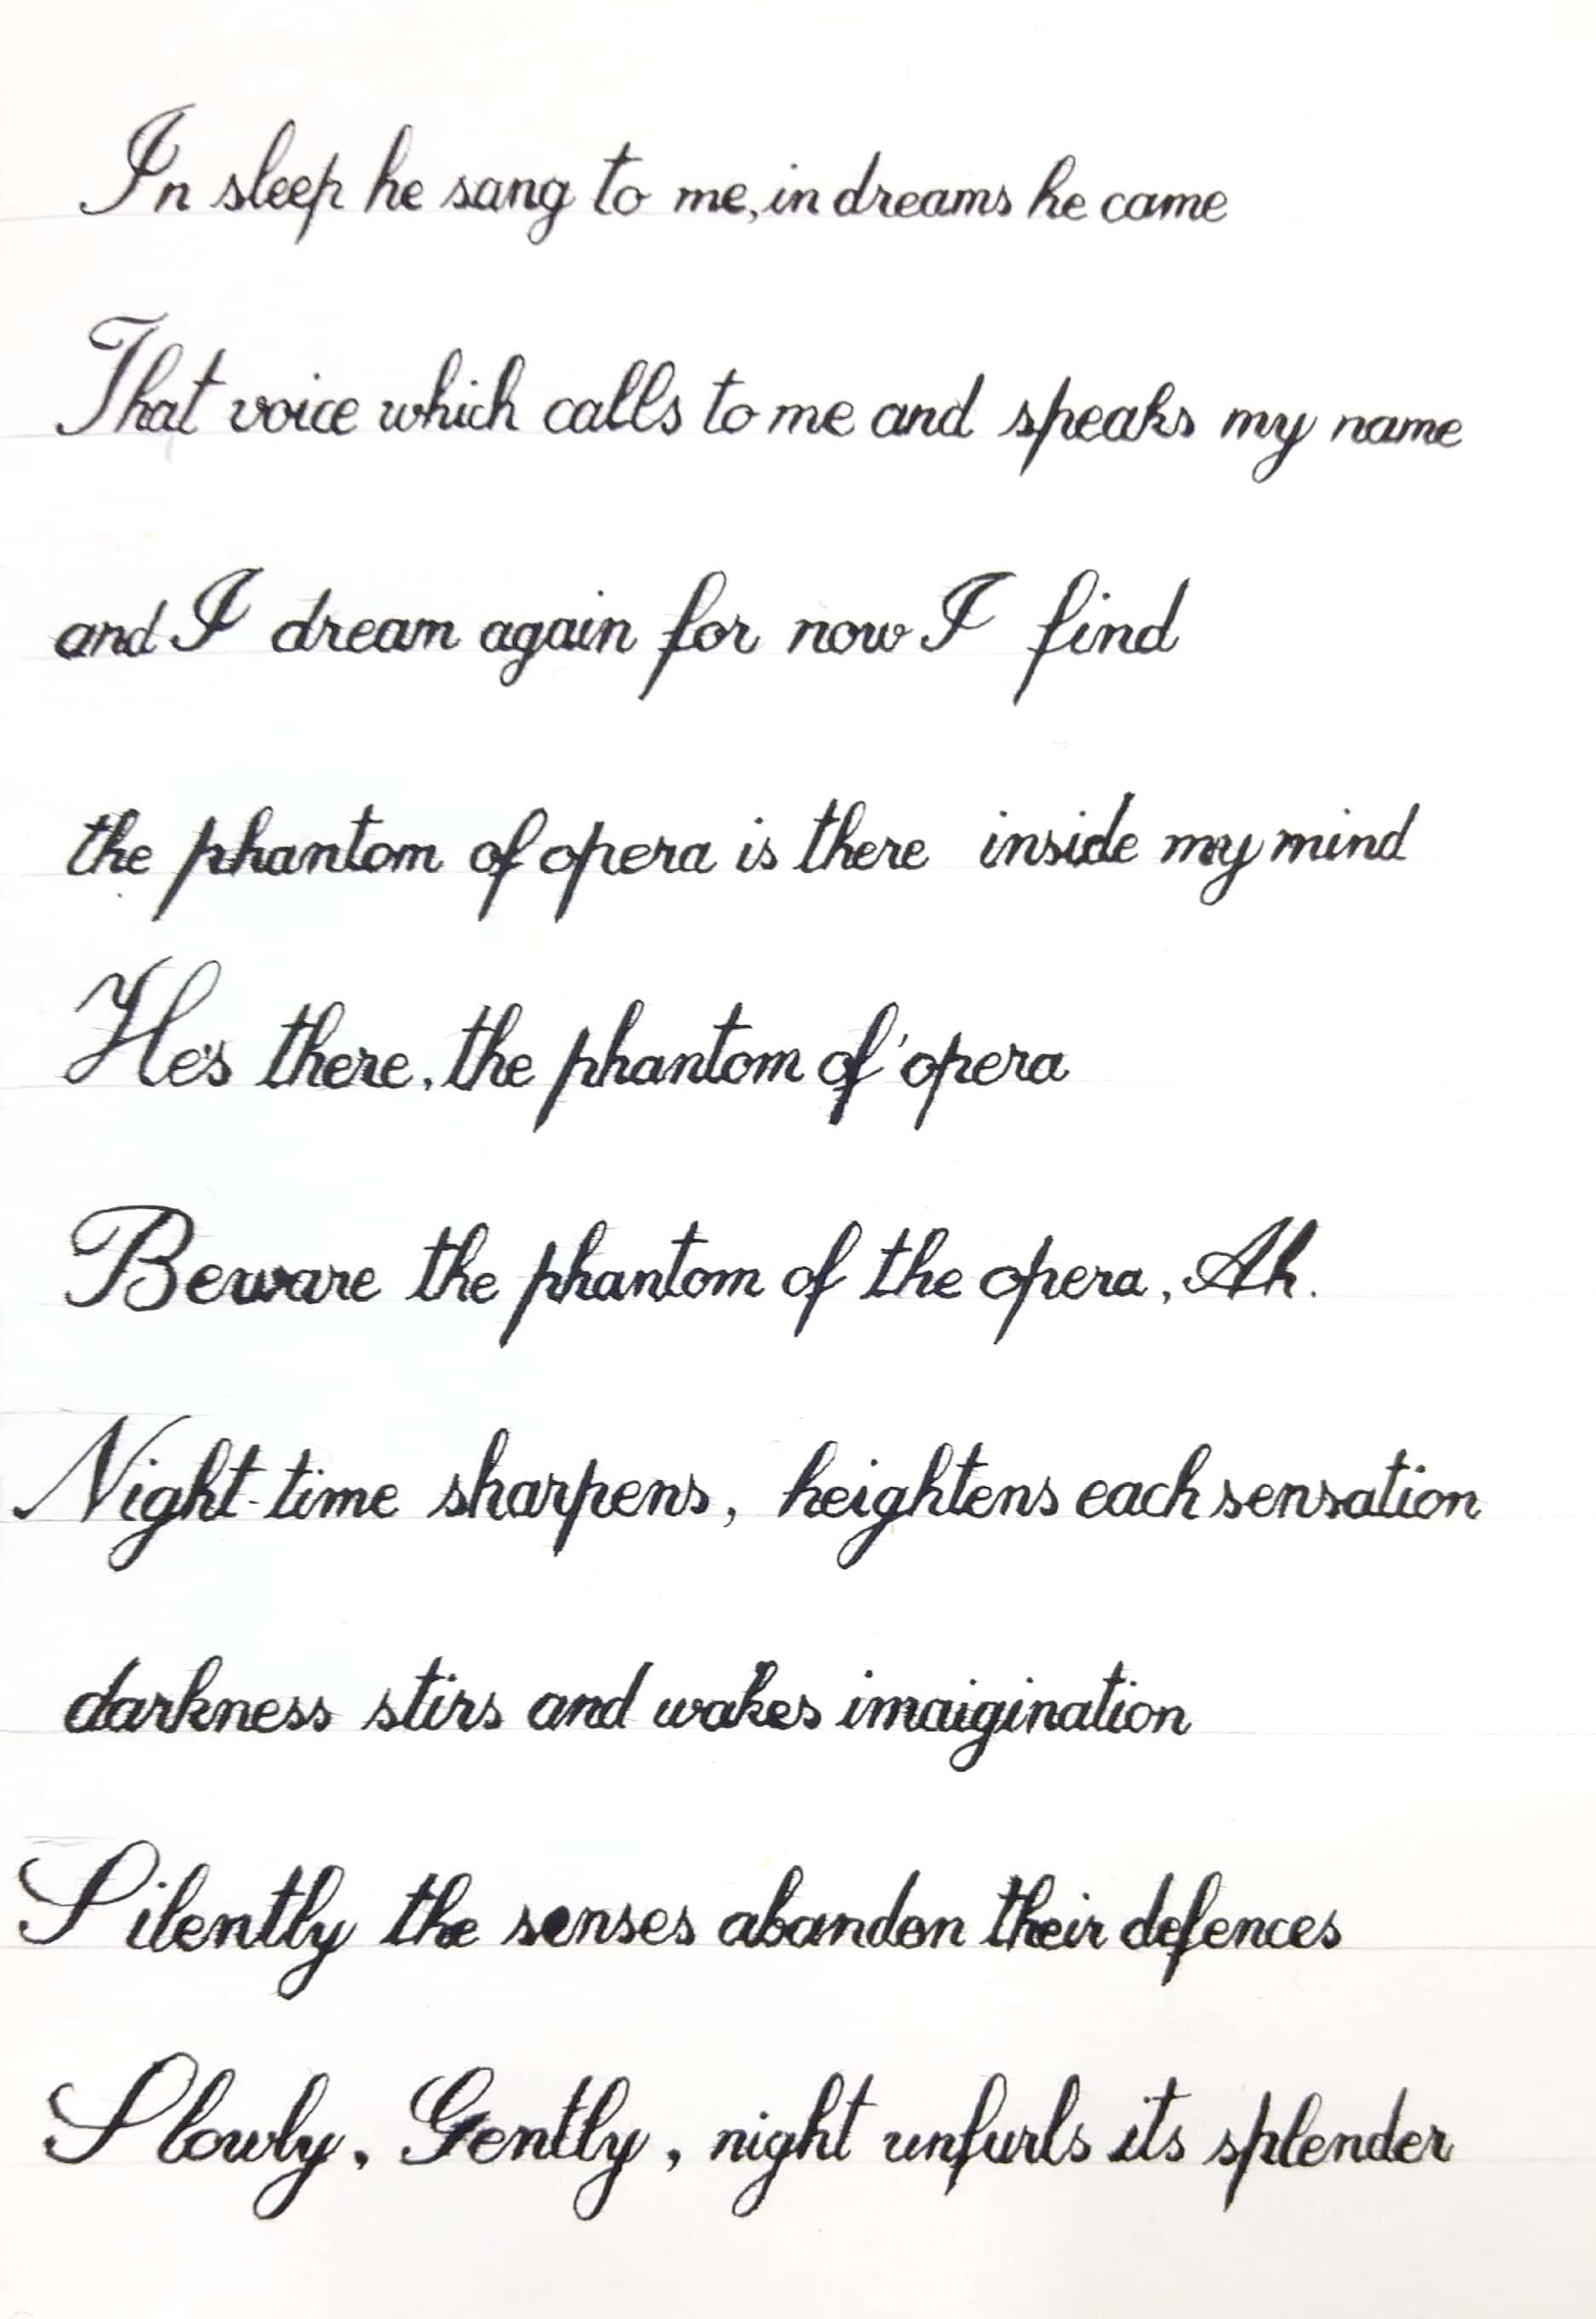 In sleep he sang to me, in dreams he came
That voice which calls to me and speaks my name
and I dream again for now I find
the phantom of opera is there inside my mind
He's there, the phantom of opera
Beware the phantom of the opera, Ah.
Night-time sharpens, heightens each sensation
darkness stirs and wakes imaigination
Silently the senses abandon their defences
Slowly, Gently, night unfurls its splender